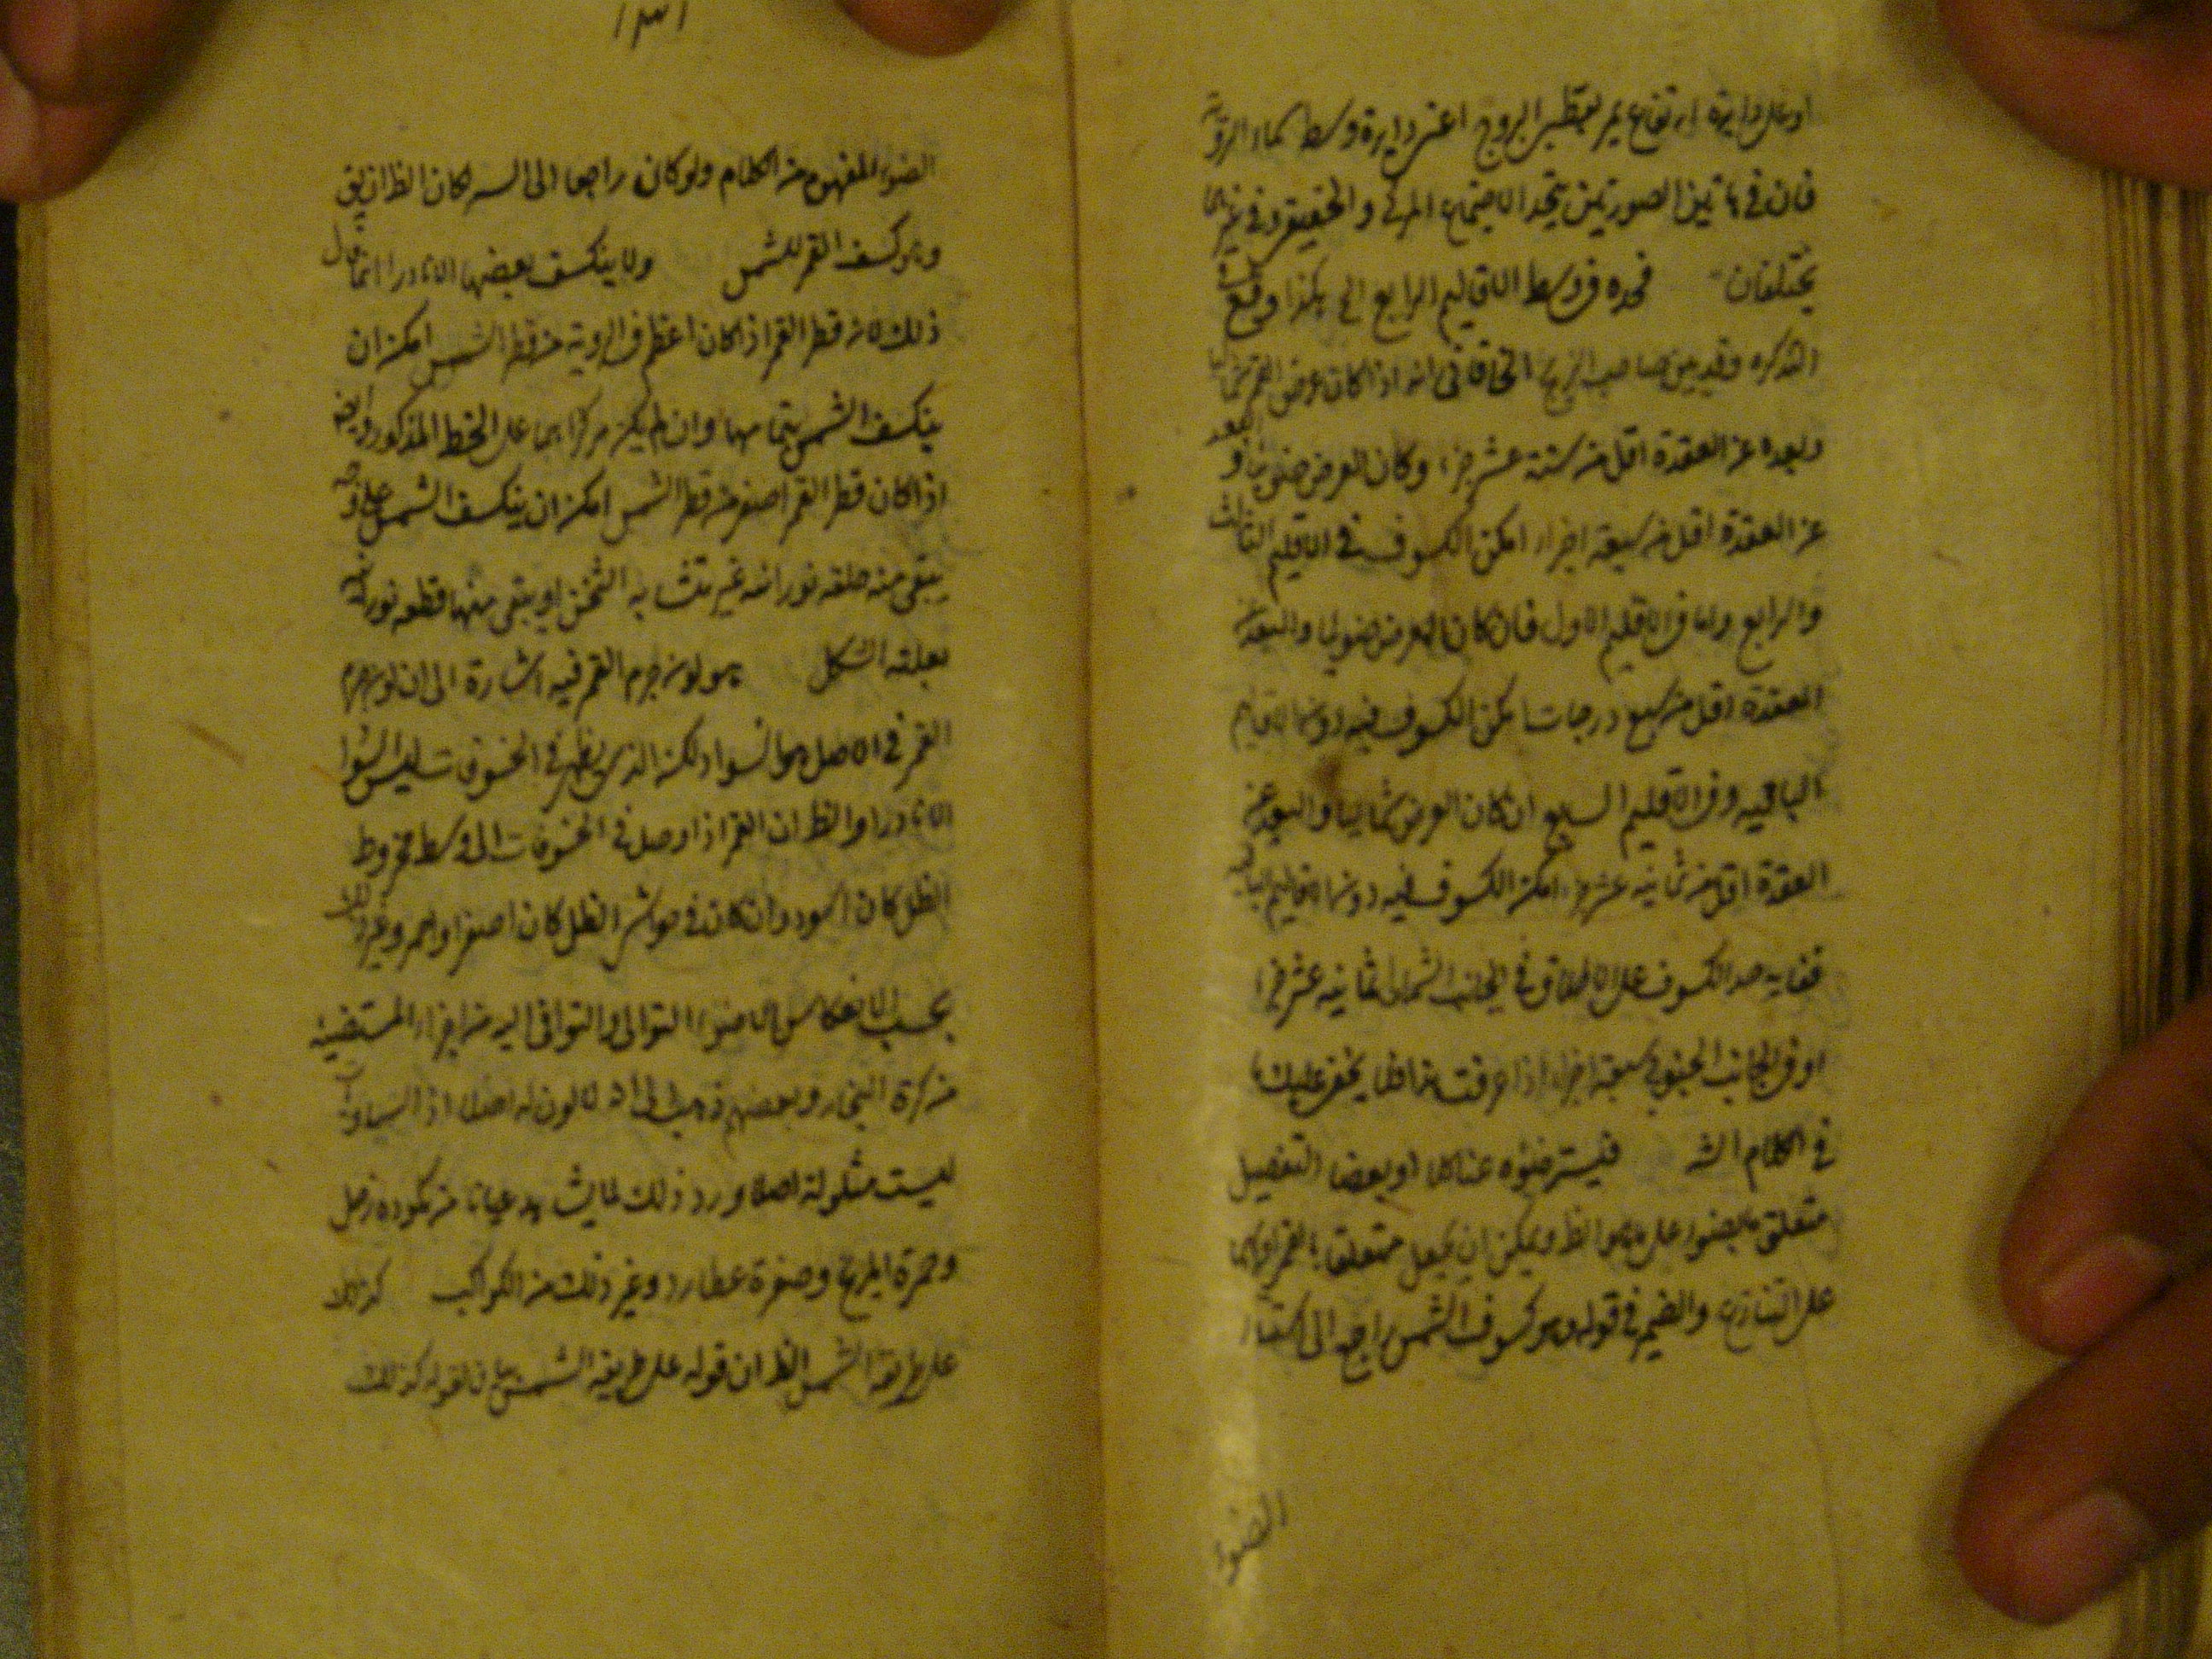 او على دايرة ارتفاع يمر بقطبى البروج اعنى دايرة وسط سماء الرؤية
فان فى هاتين الصورتين يتحد الاجتماع المرئى والحقيقى وفى غيرهما
يختلفان فحده فى وسط الاقاليم الرابع الخ هكذا وقع فى
التذكره وقد بين صاحب الزيج الخاقانى انه اذا كان عرض القمر شماليا
وبعده عن العقدة اقل من ستة عشر جزء وكان العرض جنوبيا والبعد
عن العقدة اقل من سبعة اجزاء امكن الكسوف فى الاقليم الثالث
والرابع واما فى الاقليم الاول فان كان العرض جنوبيا والبعد عن
العقدة اقل من سبع درجات امكن الكسوف فيه دون الاقاليم
الباقيه وفى الاقليم السابع ان كان العرض شماليا والبعد عن
العقدة اقل من ثمانيه عشر جزء امكن الكسوف فيه دون الاقاليم الباقيه
فغايه حد الكسوف على الاطلاق فى الجانب الشمالى ثمانيه عشر جزءا
او فى الجانب الجنوبى سبعة اجزاء اذا عرفت هذا فلا يخفى عليك ما
فى الكلام الشه فيستر ضوءه عنا كلا او بعضا التفصيل
متعلق بالضوء على ما هو الظ ويمكن ان يجعل متعلقا بالقمر او بهما
على التنازع والضمير فى قوله وهو كسوف الشمس راجع الى استتار
الضوء
١٣١
الضوء المفهوم من الكلام ولو كان راجعا الى الستر لكان الظ ان يق
وهو كسف القمر للشمس ولا ينكسف بعضها الا نادرا انما قال
ذلك لان قطر القمر اذا كان اعظم فى الروية من قطر الشمس امكن ان
ينكسف الشمس بتمامها وان لم يكن مركزاهما على الخط المذكور وايضا
اذا كان قطر القمر اصغر من قطر الشمس امكن ان ينكسف الشمس على وجه
يبقى منه حلقه نورانيه غير متشابه الثخن او يبقى منها قطعه نورانيه
هلالية الشكل هو لون جرم القمر فيه اشارة الى ان لون جرم
القمر فى الاصل هو السواد لكن الذى يظهر فى الخسوفات ليس السواد
الا نادرا والظ ان القمر اذا وصل فى الخسوفات الى وسط مخروط
الظل كان اسود وان كان فى حواشى الظل كان اصفر او احمر وغير ذلك
بحسب الانعكاس الاضواء التوالى والتوافى اليه من اجزاء المستضيئة
من كرة البخار وبعضهم ذهب الى انه لا لون له اصلا اذ السماويات
ليست متلونة اصلا ورد ذلك لما يشاهد عيانا من كمودة زحل
وحمرة المريخ وصفرة عطارد وغير ذلك من الكواكب كذلك
على طريقة الشمس الظ ان قوله على طريقة الشمس بيان لقوله كذلك